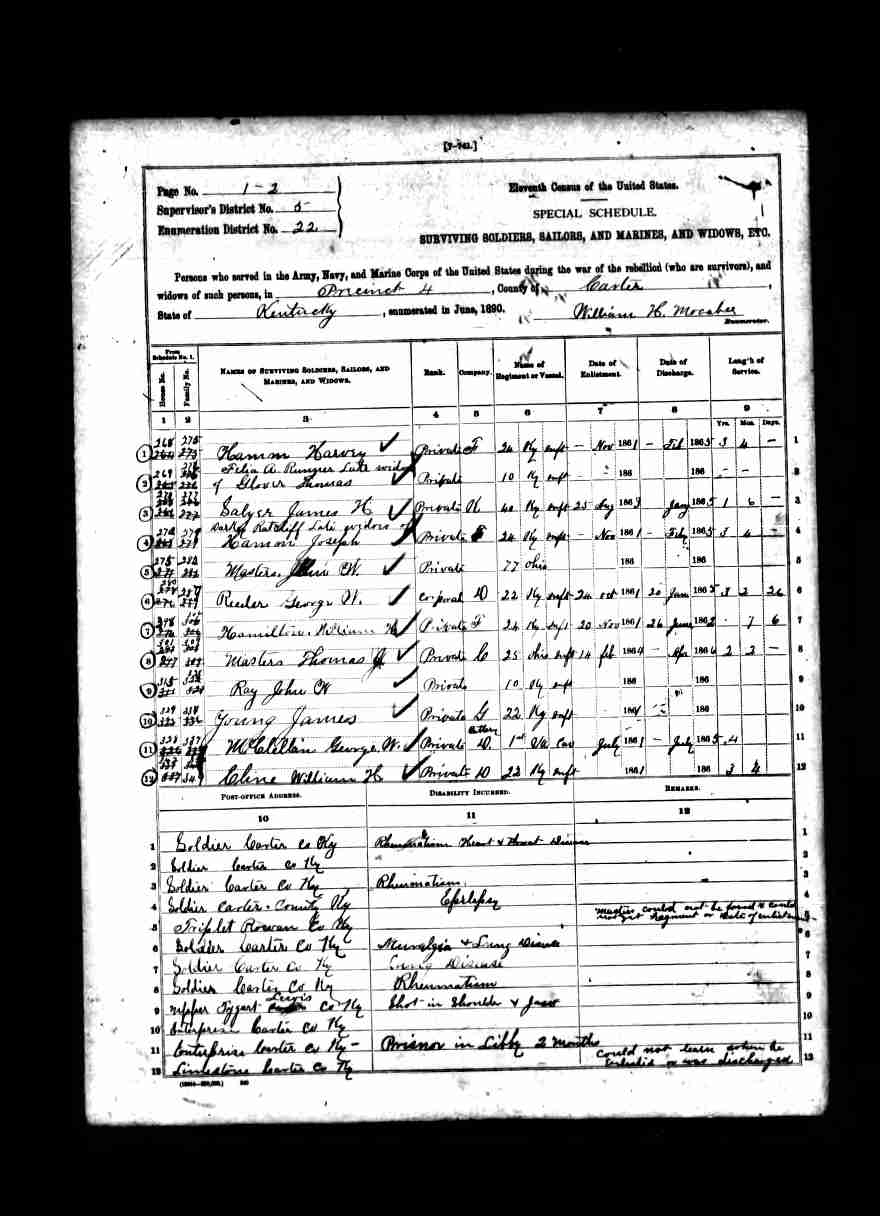 [7-761.]
Page No. 1-2
Supervisor's District No. 5
Enumeration District No. 22
Eleventh Census of the United States.
SPECIAL SCHEDULE.
SURVIVING SOLDIERS, SAILORS, AND MARINES, AND WIDOWS, ETC.
Persons who served in the Army, Navy, and Marine Corps of the United States during the war of the rebellion (who are survivors), and
widows of such persons, in Precinct 4, County of Carter,
State of Kentucky, enumerated in June, 1890. William H.
Enumerator.
From Schedule No. 1.
House No. Family No. NAMES OF SURVIVING SOLDIERS, SAILORS, AND MARINES, AND WIDOWS. Rank. Company. Name of Regiment or Vessel. Date of Enlistment. Date of Discharge. Length of Service.
1 2 3 4 5 6 7 8 9
Yrs. Mos. Days.
1 Hamm Harvey Private F 24 Ky inft - Nov 1861 - Feb 1865 3 4 - 1
Felia A. Late widow
2 of Glover Thomas Private 10 Ky inft - 186 186 - - 2
3 Salyer James H Private K 40 Ky inft 25 Aug 1863 Jany 1865 1 6 - 3
Ratcliff Late widow of
4 Hamon Joseph Private 24 Ky inft - Nov 1861 - Feby 1865 3 4 - 4
5 Masters W. Private 77 Ohio 186 186 5
6 Reeder George W. Corporal D 22 Ky inft 24 oct 1861 20 Jan 1865 3 2 26 6
7 Hamilton William H Private F 24 Ky inft 20 Nov 1861 26 June 1862 7 6 7
8 Masters Thomas J Private C 25 Ohio inft 14 feb 1864 - Apr 1866 2 2 - 8
9 Ray John W Private 10 Ky inft 186 186 9
10 Young James Private G 22 Ky inft 1861 186 10
11 McClellan George W. Private Battery D. 1st Va Cav July 1861 - July 1865 4 11
12 Cline William H Private D 22 Ky inft 1861 186 3 4 12
POST-OFFICE ADDRESS. DISABILITY INCURRED. REMARKS.
10 11 12
1 Soldier Carter Co Ky Rheumatism Heart & Throat Disease 1
2 Soldier Carter Co Ky 2
3 Soldier Carter Co Ky Rheumatism 3
4 Soldier Carter County Ky Eperlepsy 4
5 Triplet Rowan Co Ky Masters could not be found & could not get Regment or date of enlistment 5
6 Soldier Carter Co Ky Nuralgia & Lung Disease 6
7 Soldier Carter Co Ky Lung Disease 7
8 Soldier Carter Co Ky Rheumatism 8
9 Upper Tygart Lewis Co Ky Shot in Shoulder & Jaw 9
10 Enterprise Carter Co Ky 10
11 Enterprise Carter Co Ky - Prisnor in Libby 2 months 11
12 Limestone Carter Co Ky Could not learn when he Enlisted or was discharged 12